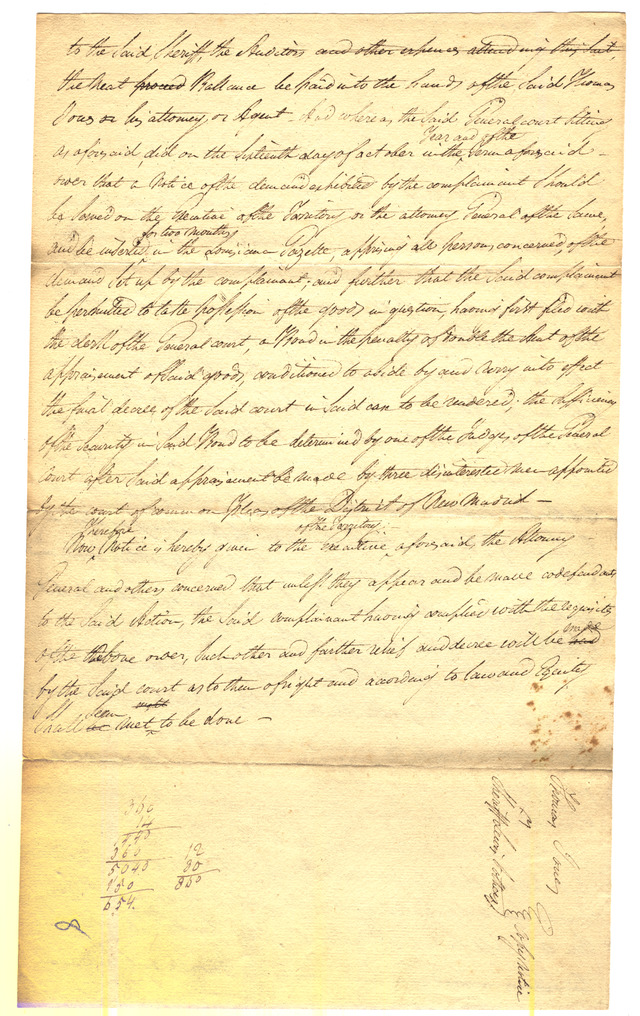 to the Said Sheriff, the Auditors and other expences attending this Suit,
the Neat proceed Ballance be paid into the hands of the Said Thomas
Jones or his attorney or Agent - And whereas the Said General court Sitting
Year and of the
as aforesaid, did on the Sixteenth day of october in the Term aforesaid -
order that a Notice of the demand exhibited by the complainant Should
be Served on the Executive of the Territory or the attorney General of the Same,
for two months
and be inserted in the Louisiana Gazette, apprising all persons concerned, of the
demand Set up by the complainant; and further that the Said complainant
be permitted to take possession of the goods in question, having first filed with
the clerk of the General court, a Bond in the penalty of double the amt of the
appraisement of Said goods, conditioned to abide by and carry into effect
the final decree of the Said court in Said case to be rendered; the Sufficiency
of the Security in Said Bond to be determined by one of the Judges of the General
Court after Said appraisement be made by three disinterested men appointed
by the court of common Pleas of the District of New Madrid -
Therefore of the Territory
Now Notice is hereby given to the Executive aforesaid, the Attorney
General and others concerned that unless they appear and be made codefendants
to the Said Action, the Said complainant having complied with the requisits
of the above order, Such other and further relief and decree will be had
made
by the Said court as to them of right and according to law and Equity
Seem
Shall meet to be done -
Thomas Jones
Notice
360
14
360
5040
150
654.
12
30
360
8